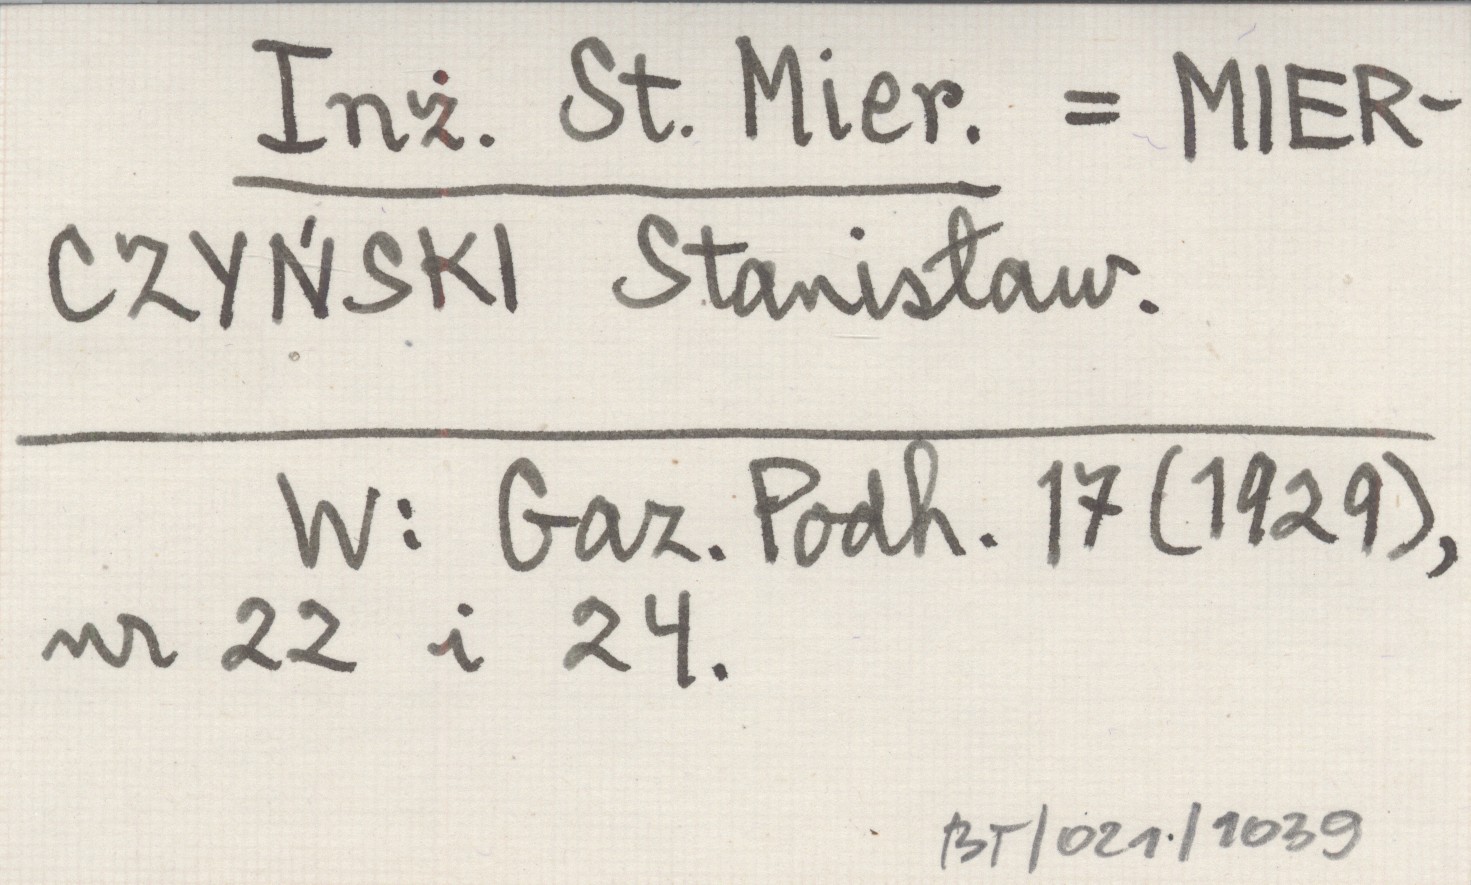 Inż. St. Mier. = MIER-
CZYŃSKI Stanisław.
W: Gaz. Podh. 17 (1929),
nr 22 i 24.
BT/021/1039